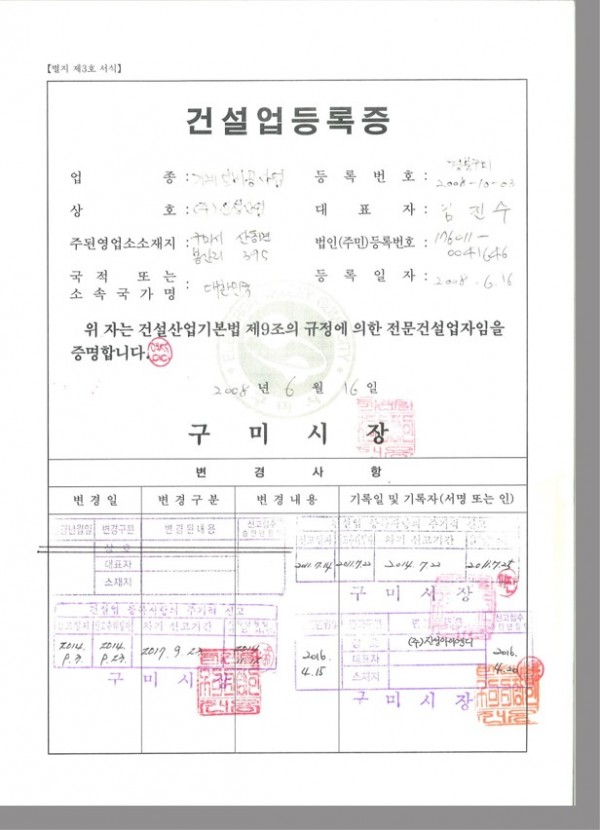 【별지 제3호 서식】
건설업등록증
업 종 : 기계설비공사업
등 록 번 호 : 경북구미 2008-10-03
상 호 : (주)
대 표 자 : 김진수
주된영업소소재지 : 구미시 산동면 봉산리 395
법인(주민)등록번호 : 176011-0041646
국 적 또 는 소 속 국 가 명 : 대한민국
등 록 일 자 : 2008. 6. 16
위 자는 건설산업기본법 제9조의 규정에 의한 전문건설업자임을
증명합니다.
2008 년 6 월 16 일
구 미 시 장
변 경 사 항
변 경 일 변 경 구 분 변 경 내 용 기록일 및 기록자(서명 또는 인)
변경구분 변경된내용
상 호
대표자
소재지
건설업 등록사항의 주기적 신고
차기 신고기간
2011.7.14 2011.7.22 2014.7.22 2011.7.25
구 미 시 장
건설업 등록사항의 주기적 신고
차기 신고기간
2014. 2014. 2017. 9. 23
구 미 시 장
상 호 (주)진영아이앤디
대표자
소재지
2016. 4.15
2016. 4.20
구 미 시 장